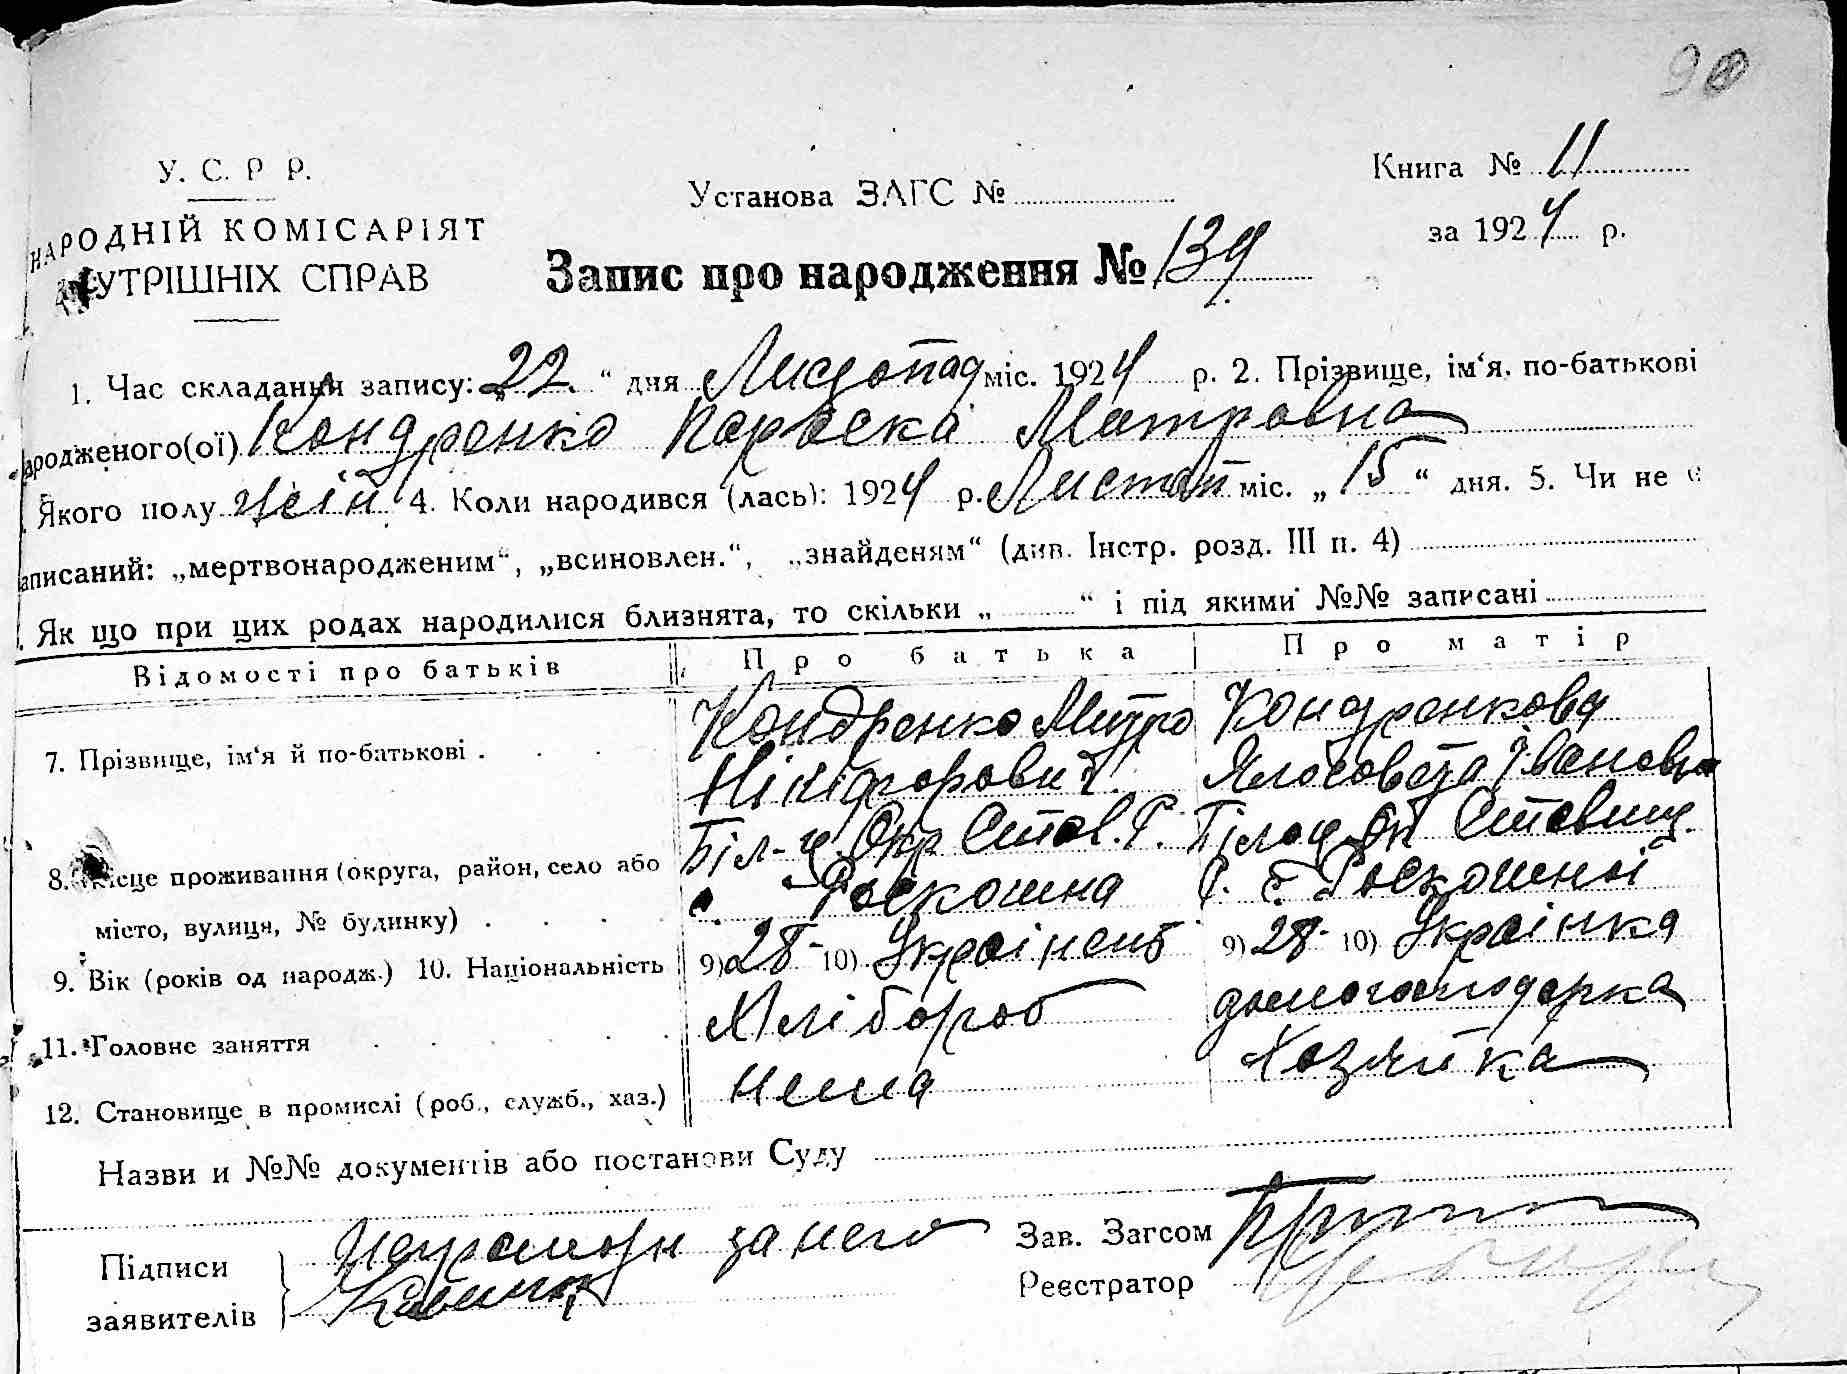 90
У. С. Р Р.
НАРОДНІЙ КОМІСАРІЯТ
УТРІШНІХ СПРАВ
Установа ЗАГС №
Книга № 11
за 1924 р.
Запис про народження № 134
1. Час складання запису: „22“ дня Листопад міс. 1924 р. 2. Прізвище, ім‘я, по-батькові
ародженого(ої) Кондренко Параска Митровна
Якого полу жін 4. Коли народився (лась): 1924 р. Листоп міс. „15“ дня. 5. Чи не є
аписаний: „мертвонародженим“, „всиновлен.“, „знайденям“ (див. Інстр. розд. III п. 4)
. Як що при цих родах народилися близнята, то скільки „ “ і під якими №№ записані
Відомості про батьків Про батька Про матір
7. Прізвище, ім‘я й по-батькові . Кондренко Митро Кондренкова
Нікіфорович Ялесовета Івановна
8. ісце проживання (округа, район, село або Біл-ц. Окр Став. Р. Білоц Ок Ставищ.
місто, вулиця, № будинку) . Роскошна Р. с. Роскошної
9. Вік (років од народж.) 10. Національність 9) 28- 10) Українець 9) 28- 10) Українка
11. Головне заняття Хлібороб домогосподарка
12. Становище в промислі (роб., служб., хаз.) нема Хозяйка
Назви и №№ документів або постанови Суду
Підписи заявителів за него
Зав. Загсом
Реєстратор